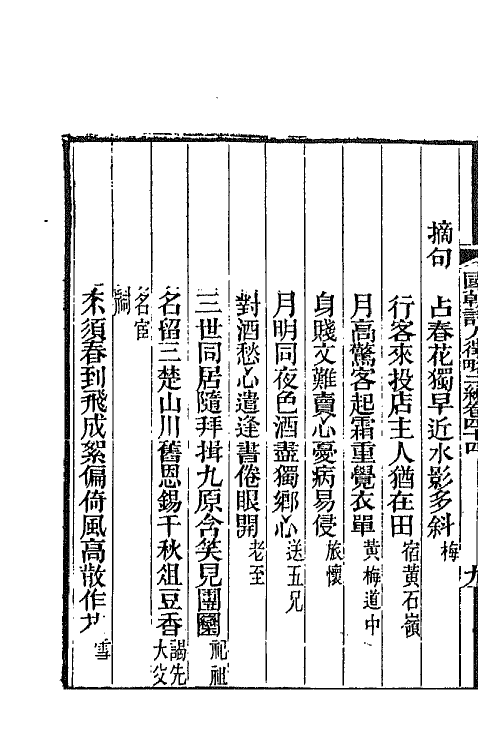 國朝詩人徵略二編卷四十四
九
摘句
占春花獨早近水影多斜梅
行客來投店主人猶在田宿黃石嶺
月高驚客起霜重覺衣單黃梅道中
身賤文難賣心憂病易侵旅懷
月明同夜色酒盡獨鄉心送五兄
對酒愁心遣逢書倦眼開老至
三世同居隨拜揖九原含笑見團圞祀祖
名留三楚山川舊恩錫千秋俎豆香謁先大父
名宦祠
不須春到飛成絮偏倚風高散作花雪